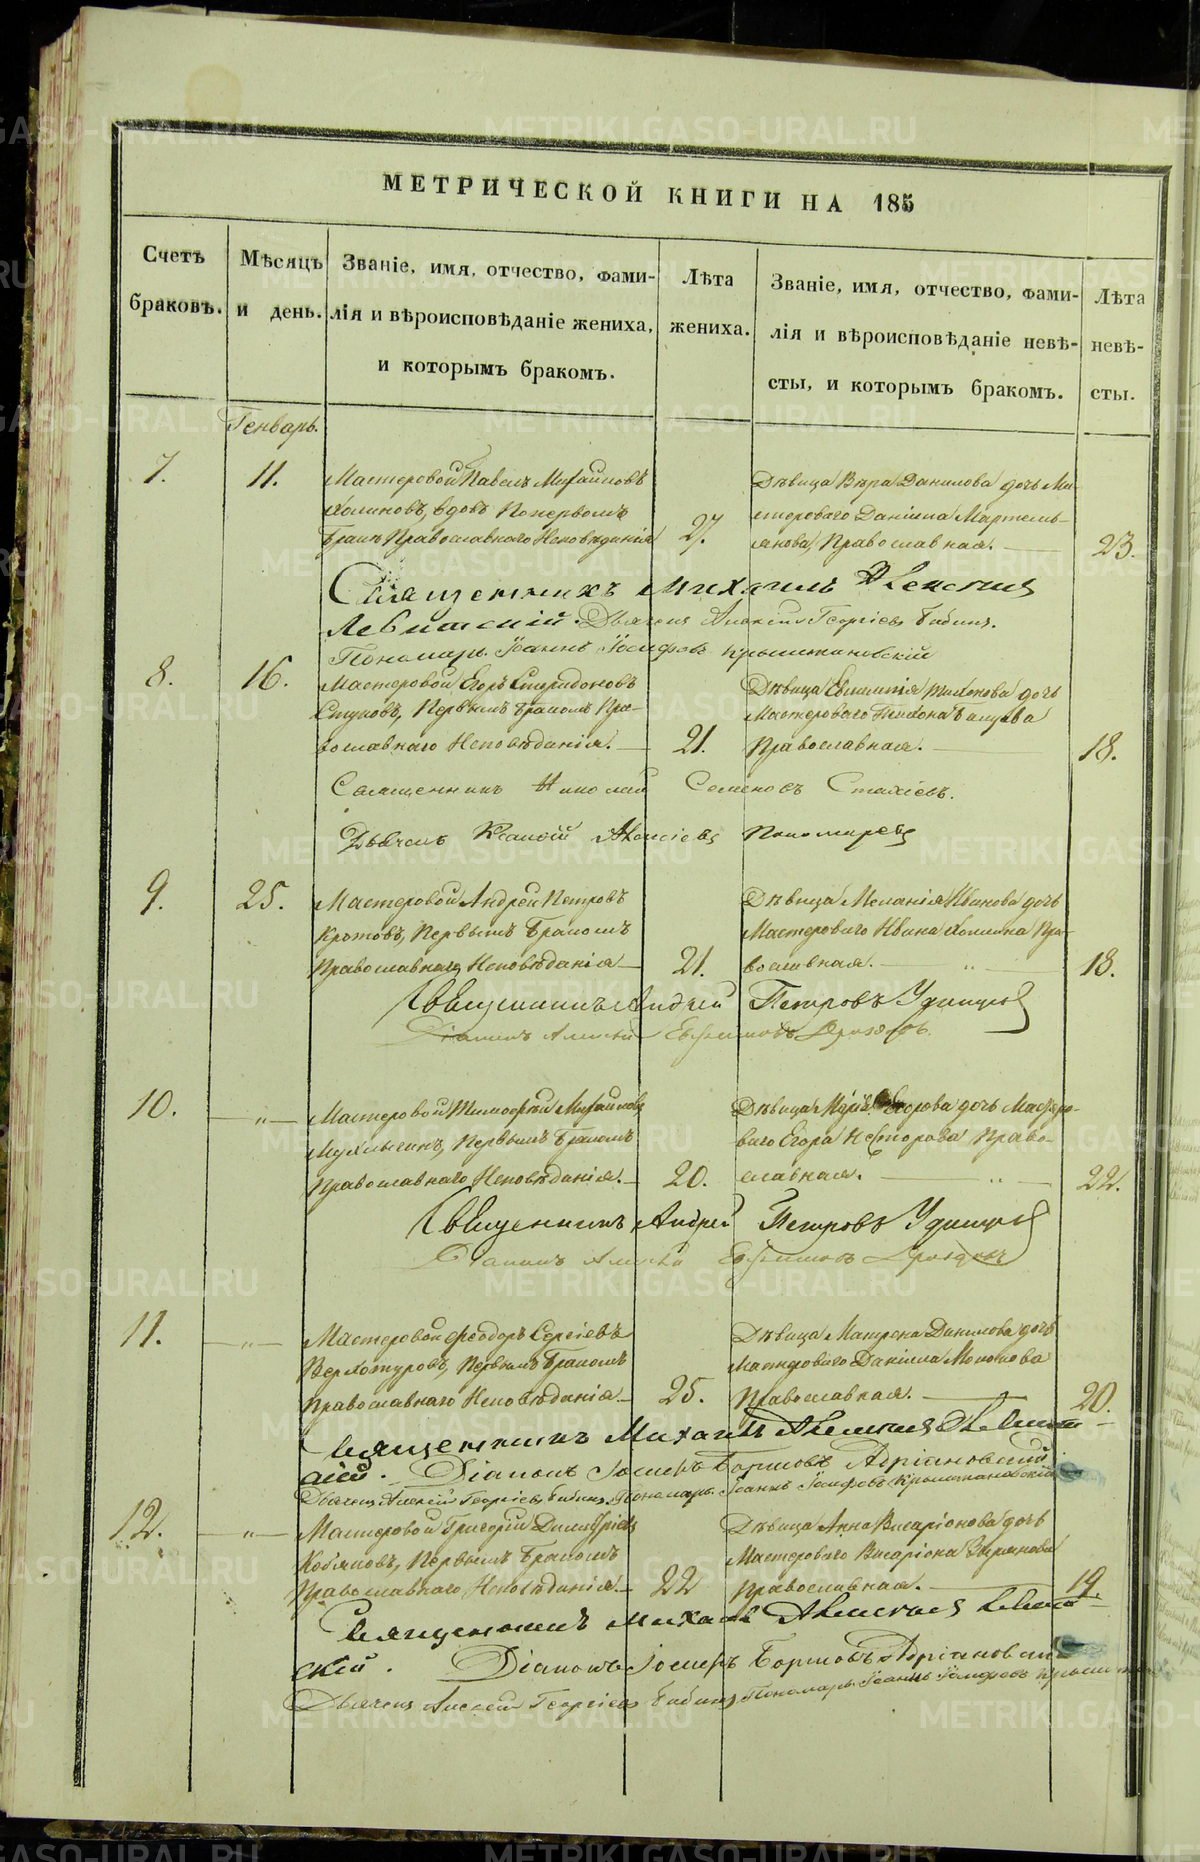 МЕТРИЧЕСКОЙ КНИГИ НА 185
Счетъ браковъ.
Мѣсяцъ и день.
Званіе, имя, отчество, фами-
лія и вѣроисповѣданіе жениха,
и которымъ бракомъ.
Лѣта жениха.
Званіе, имя, отчество, фами-
лія и вѣроисповѣданіе невѣ-
сты, и которымъ бракомъ.
Лѣта невѣ-
сты.
Генварь.
7. 11.
Мастеровой Павелъ Михайловъ
Холиновъ, вдовъ по первомъ
бракѣ Православнаго Исповѣданія 27.
Дѣвица Вѣра Данилова дочь Ма-
стероваго Даніила Мартемь-
янова Православная. 23.
Священникъ Михаилъ Алексіевъ
Левитскій. Дьячекъ Алексій Георгіевъ Бабинъ.
Пономарь Іоаннъ Іосифовъ Крыжановскій
8. 16.
Мастеровой Егоръ Спиридоновъ
Стуковъ, Первымъ бракомъ Пра-
вославнаго Исповѣданія. 21.
Дѣвица Тихонова дочь
Мастероваго Тихона
Православная. 18.
Священникъ Николай Семеновъ Стахіевъ.
Дьячекъ Алексіевъ Пономаревъ
9. 25.
Мастеровой Андрей Петровъ
Кротовъ, Первымъ бракомъ
Православнаго Исповѣданія 21.
Дѣвица Меланія Иванова дочь
Мастероваго Ивана Холкина Пра-
вославная. 18.
Священникъ Андрей Петровъ Удинцевъ
Діаконъ Алексій Евфимовъ Дроздовъ.
10. „
Мастеровой Тимофей Михайловъ
Мухлыгинъ, Первымъ бракомъ
Православнаго Исповѣданія. 20.
Дѣвица Егорова дочь Мастеро-
ваго Егора Нестерова Право-
славная. 22.
Священникъ Андрей Петровъ Удинцевъ
Діаконъ Алексій Евфимовъ Дроздовъ
11. „
Мастеровой Феодоръ Сергіевъ
Верхотуровъ, Первымъ бракомъ
Православнаго Исповѣданія 25.
Дѣвица Матрена Данилова дочь
Мастероваго Даніила
Православная. 20.
Священникъ Михаилъ Алексіевъ Левит-
скій. Діаконъ Іосифъ Борисовъ Адріановскій
Дьячекъ Алексій Георгіевъ Бабинъ Пономарь Іоаннъ Іосифовъ Крыжановскій
12. „
Мастеровой Григорій Димитріевъ
Кобяковъ, Первымъ бракомъ
Православнаго Исповѣданія. 22
Дѣвица Анна Висаріонова дочь
Мастероваго Висаріона Зырянова
Православная. 19.
Священникъ Михаилъ Алексіевъ Левит-
скій. Діаконъ Іосифъ Борисовъ Адріановскій
Дьячекъ Алексій Георгіевъ Бабинъ Пономарь Іоаннъ Іосифовъ
METRIKI.GASO-URAL.RU